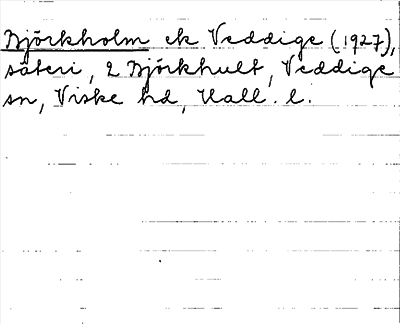 Björkholm ek Veddige (1927),
säteri, 2 Björkhult, Veddige
sn, Viske hd, Hall. l.